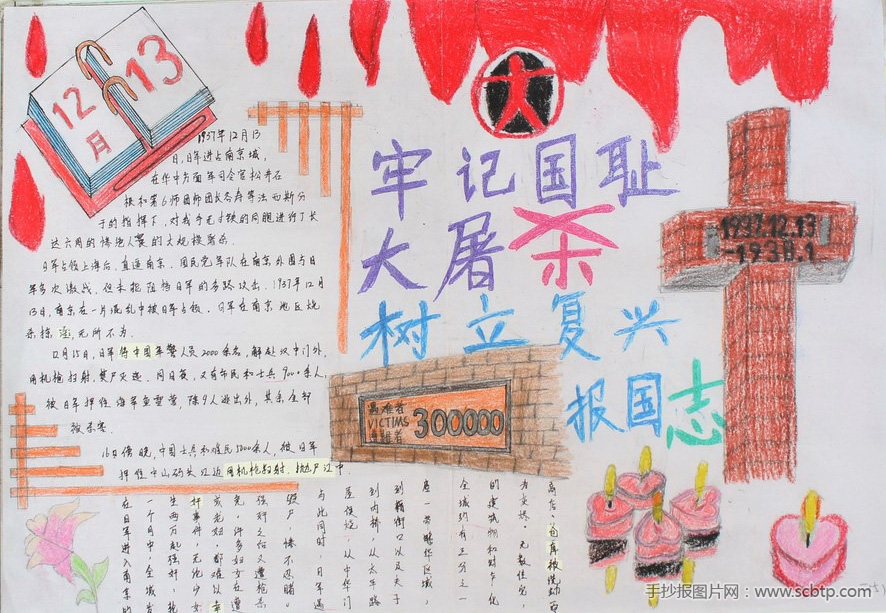 12
月
13
大
牢记国耻
大屠杀
树立复兴
报国志
1937.12.13
-1938.1
遇难者
VICTIMS
遭難者
300000
1937年12月13
日,日军进占南京城,
在华中方面军司令官松井石
根和第6师团师团长谷寿夫等法西斯分
子的指挥下,对我手无寸铁的同胞进行了长
达六周的惨绝人寰的大规模屠杀.
日军占领上海后,直逼南京.国民党军队在南京外围与日
军多次激战,但未能阻挡日军的多路攻击.1937年12月
13日,南京在一片混乱中被日军占领.日军在南京地区烧
杀掠淫无所不为.
12月15日,日军将中国军警人员2000余名,解赴汉中门外,
用机枪扫射,焚尸灭迹.同日夜,又有市民和士兵9000余人,
被日军押往海军鱼雷营,除9人逃出外,其余全部
被杀害.
16日傍晚,中国士兵和难民5000余人,被日军
押往中山码头江边,用机枪射杀,抛尸江中
在日军进入南京的
一个月中,全城发
生两万起强奸、轮
奸事件,无论少女
或老妇,都难以幸
免,许多妇女在遭
强奸之后又遭枪杀
毁尸,惨不忍睹.
与此同时,日军遇
屋便烧.从中华门
到内桥,从太平路
到新街口以及夫子
庙一带繁华区域,
全城约有三分之一
的建筑物和财产化
为灰烬.无数住宅,
商店,仓库被洗劫
手抄报图片网:www.scbtp.com